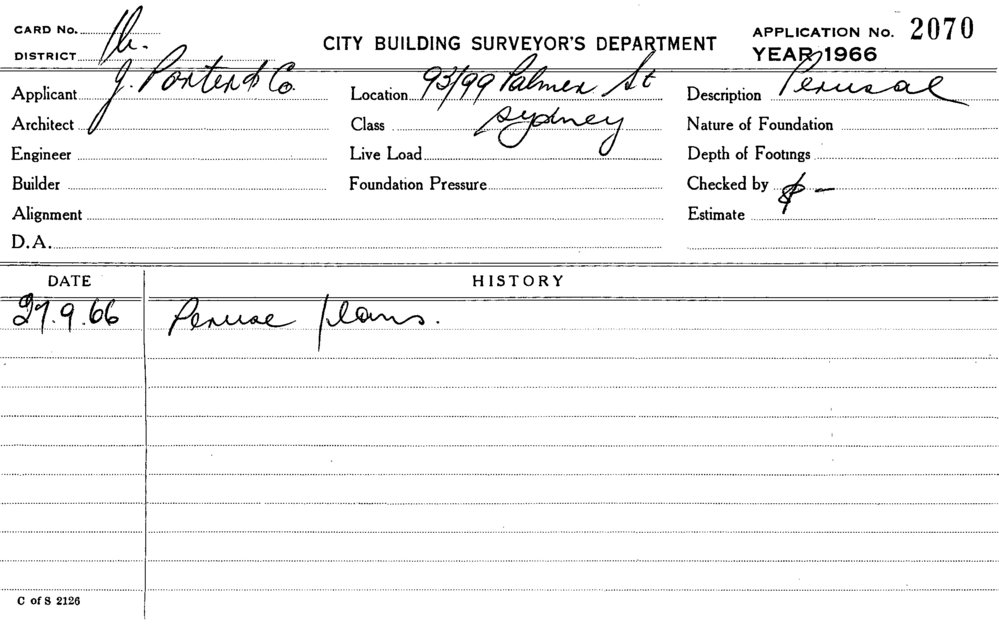 CARD No.
DISTRICT
CITY BUILDING SURVEYOR'S DEPARTMENT
APPLICATION No. 2070
YEAR 1966
Applicant J. Porter & Co. Location 93/99 Palmer St Description Perusal
Architect Class Sydney Nature of Foundation
Engineer Live Load Depth of Footings
Builder Foundation Pressure Checked by
Alignment Estimate $ -
D.A.
DATE HISTORY
27.9.66 Peruse plans.
C of S 2126